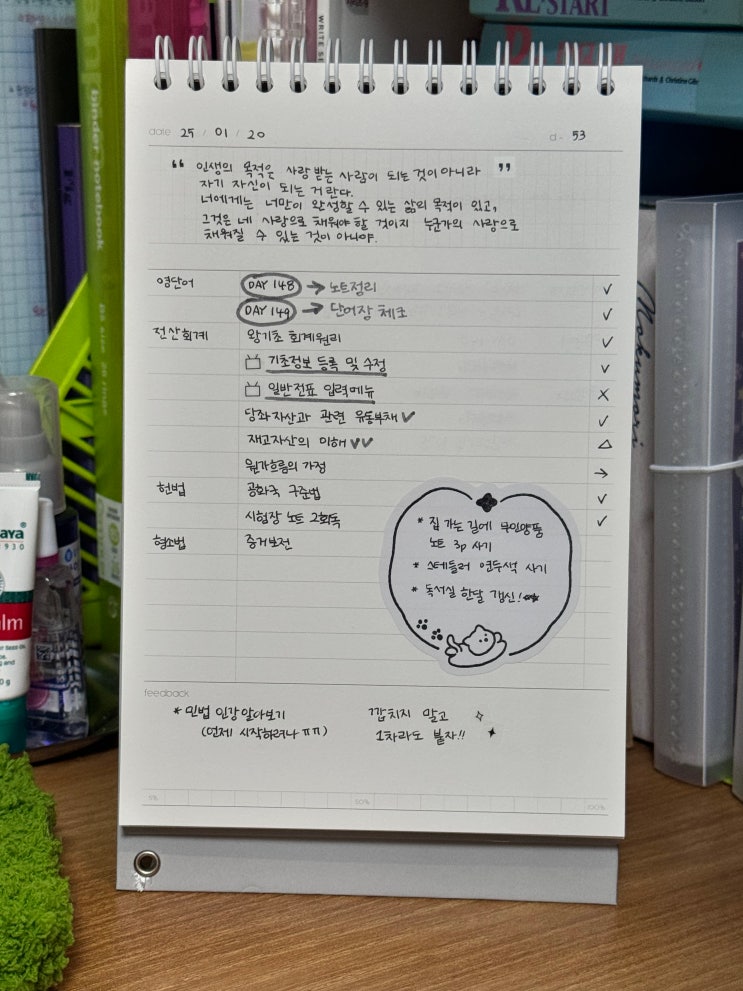 RE:START
WRITE
binder-notebook
date 25 / 01 / 20
d- 53
“ 인생의 목적은 사랑받는 사람이 되는 것이 아니라 ”
자기 자신이 되는 거란다.
너에게는 너만이 완성할 수 있는 삶의 목적이 있고,
그것은 네 사랑으로 채워야 할 것이지 누군가의 사랑으로
채워질 수 있는 것이 아니야.
영단어 DAY 148 → 노트정리 ✓
DAY 149 → 단어장 체크 ✓
전산회계 왕기초 회계원리 ✓
기초정보 등록 및 수정 ✓
일반전표 입력메뉴 X
당좌자산과 관련 유동부채 ✓ ✓
재고자산의 이해 ✓✓ △
원가흐름의 가정 →
헌법 공화국 구준법 ✓
시험장 노트 2회독 ✓
형소법 증거보전
* 집 가는 길에 무인양품
노트 3p 사기
* 스테들러 연두색 사기
* 독서실 한달 갱신!
feedback
* 민법 인강 알아보기
(언제 시작하려나 ㅠㅠ)
깝치지 말고
1차라도 붙자!!
5%
50%
100%